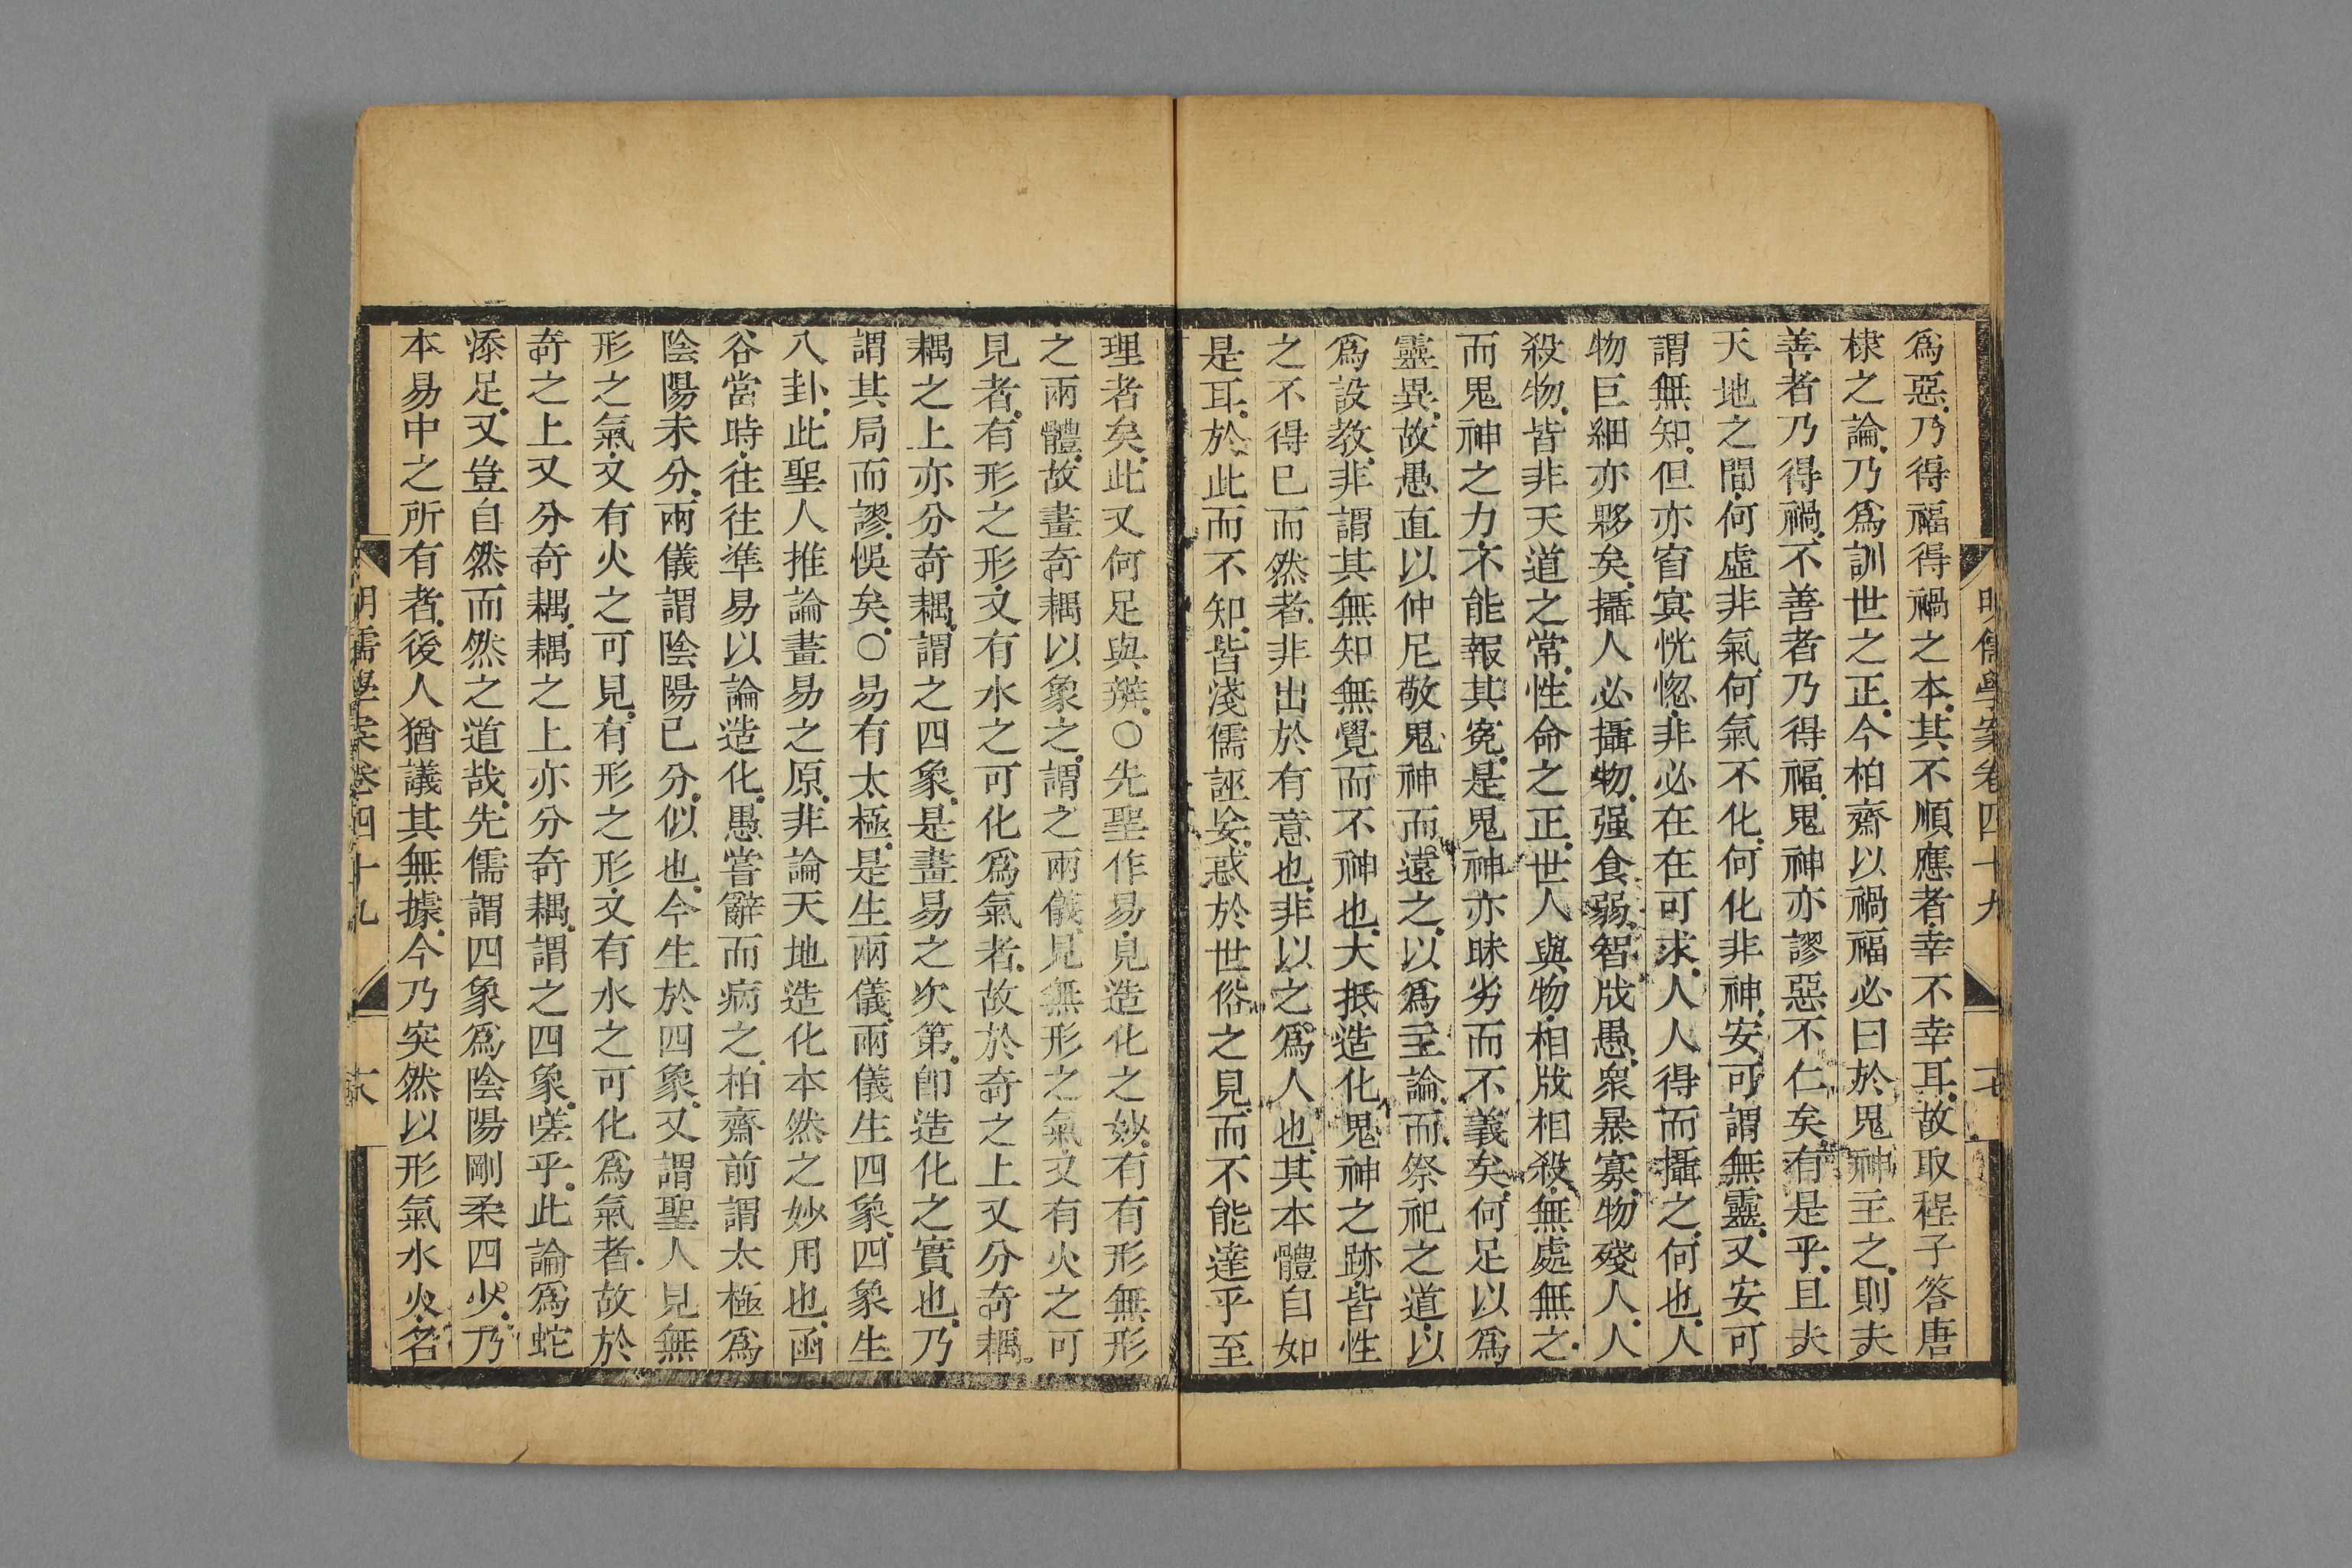 爲惡乃得福得禍之本其不順應者幸不幸耳故取程子答唐
棣之論乃爲訓世之正今柏齋以禍福必曰於鬼神主之則夫
善者乃得禍不善者乃得福鬼神亦謬惡不仁矣有是乎且夫
天地之間何虛非氣何氣不化何化非神安可謂無靈又安可
謂無知但亦窅冥恍惚非必在在可求人人得而攝之何也人
物巨細亦夥矣攝人必攝物强食弱智戕愚衆暴寡物殘人人
殺物皆非天道之常性命之正世人與物相戕相殺無處無之
而鬼神之力不能報其冤是鬼神亦昧劣而不義矣何足以爲
靈異故愚直以仲尼敬鬼神而遠之以爲主論而祭祀之道以
爲設教非謂其無知無覺而不神也大抵造化鬼神之跡皆性
之不得已而然者非出於有意也非以之爲人也其本體自如
是耳於此而不知皆淺儒誣妄惑於世俗之見而不能達乎至
明儒學案卷四十九
理者矣此又何足與辨○先聖作易見造化之妙有有形無形
之兩體故畫奇耦以象之謂之兩儀見無形之氣又有火之可
見者有形之形又有水之可化爲氣者故於奇之上又分奇耦
耦之上亦分奇耦謂之四象是畫易之次第卽造化之實也乃
謂其局而謬悞矣○易有太極是生兩儀兩儀生四象四象生
八卦此聖人推論畫易之原非論天地造化本然之妙用也函
谷當時往往準易以論造化愚嘗辭而病之柏齋前謂太極爲
陰陽未分兩儀謂陰陽已分似也今生於四象又謂聖人見無
形之氣又有火之可見有形之形又有水之可化爲氣者故於
奇之上又分奇耦耦之上亦分奇耦謂之四象嗟乎此論爲蛇
添足又豈自然而然之道哉先儒謂四象爲陰陽剛柔四少乃
本易中之所有者後人猶議其無據今乃突然以形氣水火名
明儒學案卷四十九